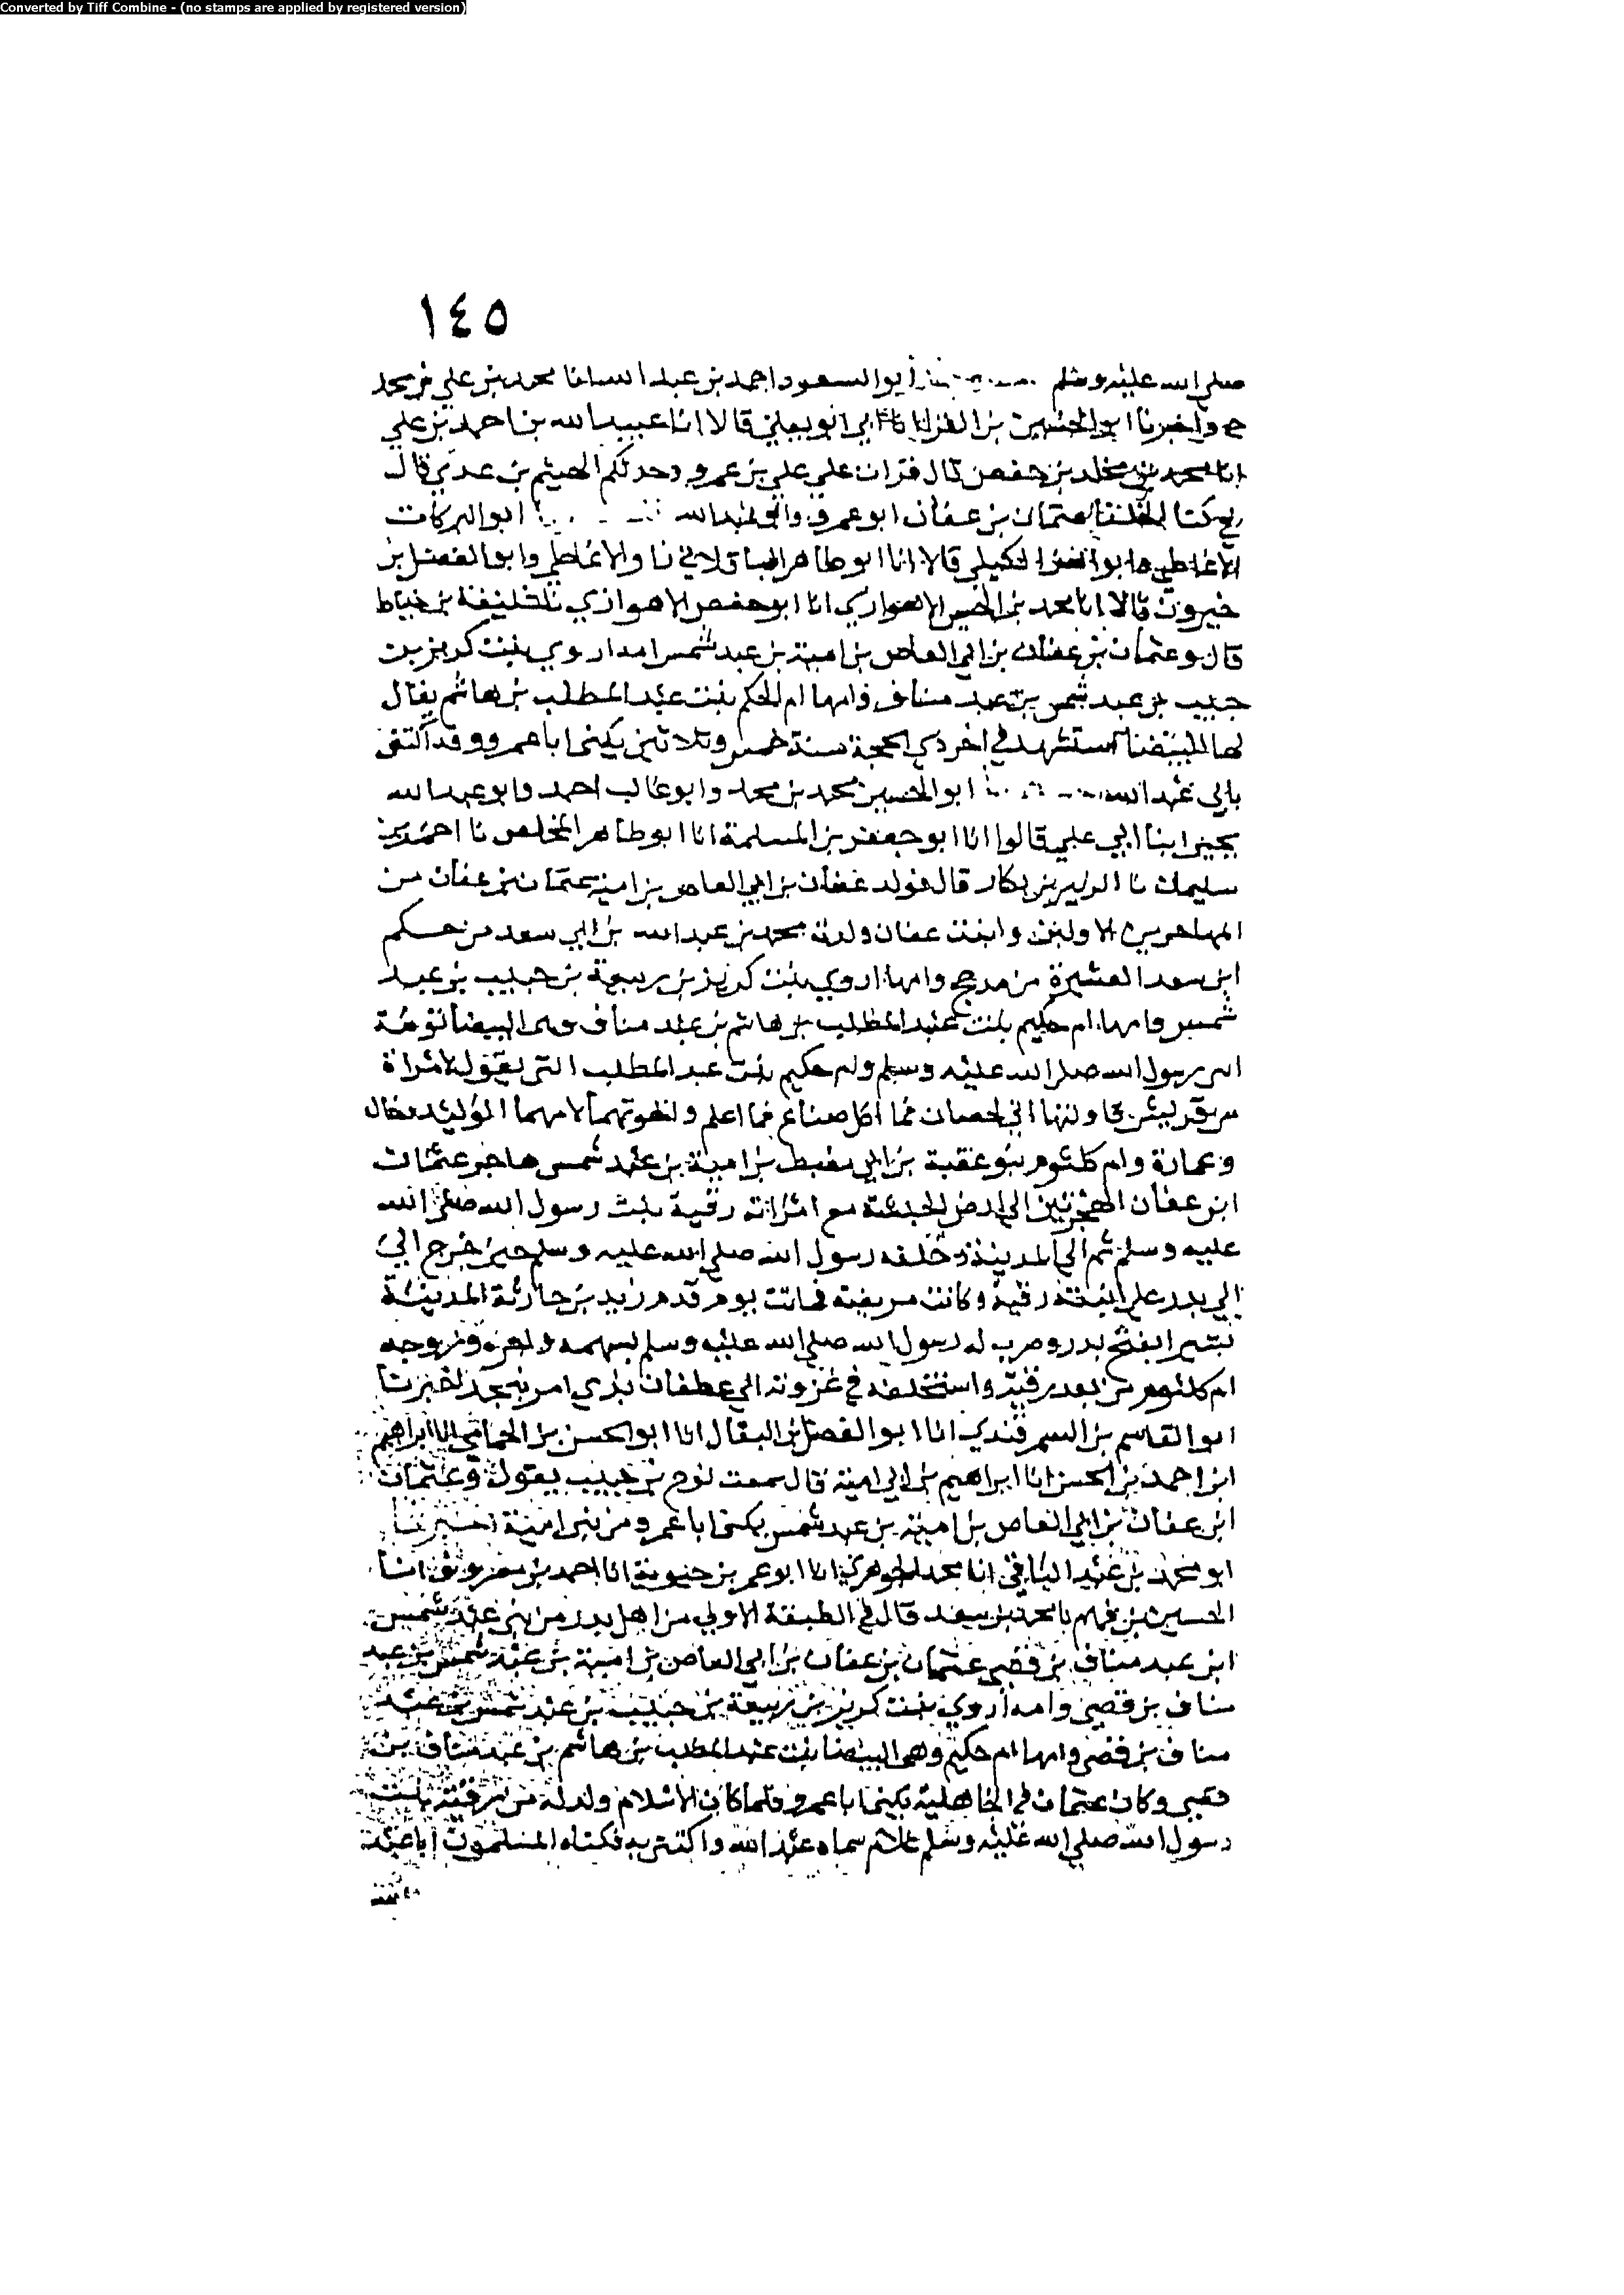 Converted by Tiff Combine - (no stamps are applied by registered version)
١٤٥
صلى الله عليه وسلم ابو السعود احمد بن علي بن محمد
ح واخبرنا ابو الحسين بن الفرا انا ابي ابو يعلي قالا انا عبيد الله بن احمد بن علي
انا محمد بن مخلد بن حفص قال قرات علي علي بن عمرو حدثكم الهيثم بن عدي قال
عثمان بن عفان ابو عمرو ابو البركات
الانماطي وابو العز الكيلي قالا انا ابو طاهر الباقلاني زاد الانماطي وابو الفضل بن
خيرون قالا انا محمد بن الحسن الاهوازي انا ابو حفص الاهوازي نا خليفة بن خياط
قال وعثمان بن عفان بن ابي العاص بن امية بن عبد شمس امه اروي بنت كريز بن
حبيب بن عبد شمس بن عبد مناف وامها ام الحكم بنت عبد المطلب بن هاشم يقال
لها البيضا استشهد في اخر ذي الحجة سنة خمس وثلاثين يكنى ابا عمرو وقد اكتنى
بابي عبد الله ابو الحسين محمد بن محمد وابو غالب احمد وابو عبد الله
يحيى ابنا ابي علي قالوا انا ابو جعفر بن المسلمة انا ابو طاهر المخلص نا احمد بن
سليمان نا الزبير بن بكار قال فولد عفان بن ابي العاص بن امية عثمان بن عفان من
المهاجرين الاولين وابنت عفان ولدت محمد بن عبد الله بن ابي سعد من حكم
ابن سعد العشيرة من مدحج وامها اروي بنت كريز بن ربيعة بن حبيب بن عبد
شمس وامها ام حكيم بنت عبد المطلب بن هاشم بن عبد مناف وهى البيضا توءمة
ابى رسول الله صلى الله عليه وسلم وام حكيم بنت عبد المطلب التى يقول لامراة
من قريش اني لحصان فما اكلم صناع فما اعلم واخوتهما لامهما الوليد وخالد
وعمارة وام كلثوم بنو عقبة بن ابي معيط بن امية بن عبد شمس هاجر عثمان
ابن عفان الهجرتين الى ارض الحبشة مع امراته رقية بنت رسول الله صلى الله
عليه وسلم ثم الى المدينة وخلفه رسول الله صلى الله عليه وسلم حين خرج الي
الي بدر علي ابنته رقية وكانت مريضة فماتت يوم قدم زيد بن حارثة المدينة
بشيرا بفتح بدر وضرب له رسول الله صلى الله عليه وسلم بسهمه واجره وزوجه
ام كلثوم من بعد رقية واستخلفه في غزوته الي غطفان بذي امر بنجد اخبرنا
ابو القاسم بن السمرقندي انا ابو الفضل بن البقال انا ابو الحسن بن الحمامي انا ابراهيم
ابن احمد بن الحسن انا ابراهيم بن ابي امية قال سمعت نوح بن حبيب يقول وعثمان
ابن عفان بن ابي العاص بن امية بن عبد شمس يكنى ابا عمرو من بني امية اخبرنا
ابو محمد بن عبد الباقي انا محمد الجوهري انا ابو عمر بن حيوية انا احمد بن معروف انا
الحسين بن فهم نا محمد بن سعد قال في الطبقة الاولي من اهل بدر من بني عبد شمس
ابن عبد مناف بن قصي عثمان بن عفان بن ابي العاص بن امية بن عبد شمس بن عبد
مناف بن قصي وامه اروي بنت كريز بن ربيعة بن حبيب بن عبد شمس بن عبد
مناف بن قصي وامها ام حكيم وهى البيضا بنت عبد المطلب بن هاشم بن عبد مناف بن
قصي وكان عثمان في الجاهلية يكنى ابا عمرو فلما كان الاسلام ولد له من رقية بنت
رسول الله صلى الله عليه وسلم غلام سماه عبد الله واكتنى به فكناه المسلمون ابا عبد
الله